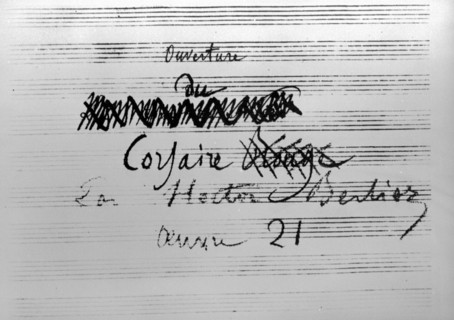 Ouverture
du
Corsaire Rouge
Par Hector Berlioz
Œuvre 21